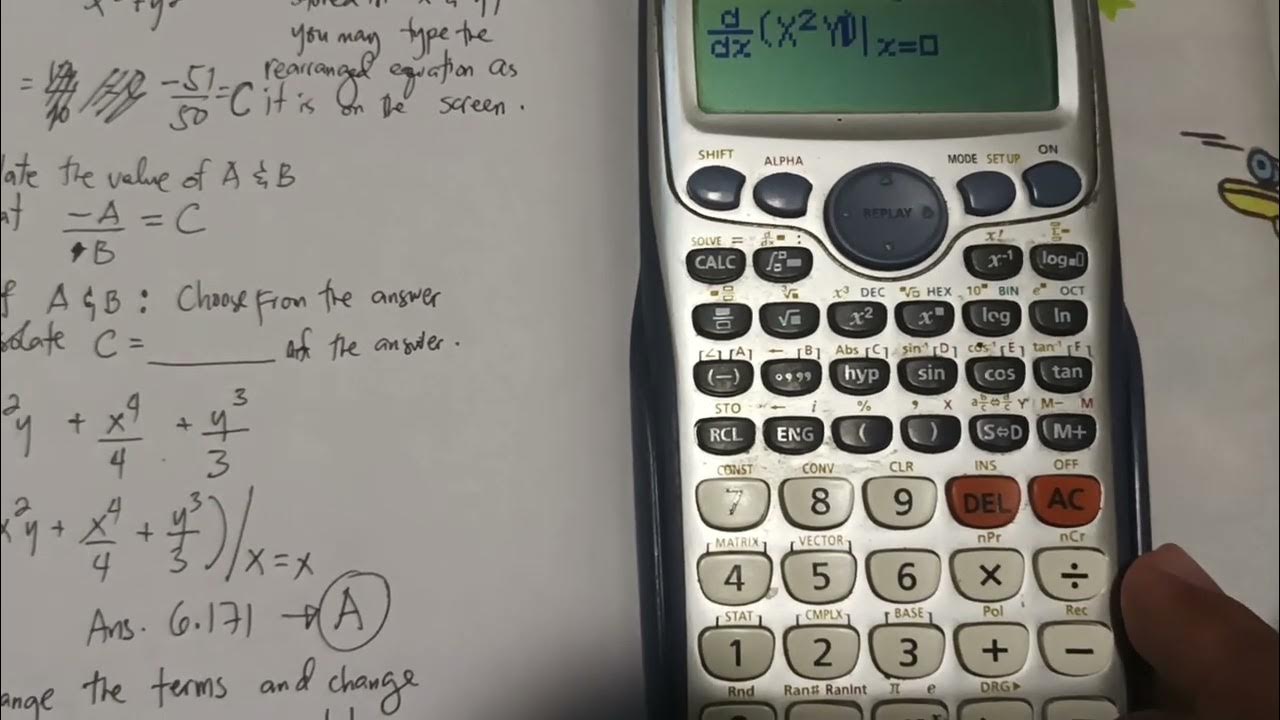 you may type the
rearranged equation as
= -51/50 = C it is on the screen.
late the value of A & B
at -A/B = C
f A & B : Choose from the answer
olate C = ______ of the answer.
²y + x⁴/4 + y³/3
x²y + x⁴/4 + y³/3)/x=x
Ans. 6.171 → A
ange the terms and change
d/dx(X²Y)|x=□
SHIFT ALPHA MODE SETUP ON
REPLAY
SOLVE = d/dx : x!
CALC ∫ x⁻¹ log
x³ DEC HEX 10 BIN e OCT
√ x² x log ln
[A] ← [B] Abs [C] sin⁻¹ [D] cos⁻¹ [E] tan⁻¹ [F]
(−) °,,, hyp sin cos tan
STO ← i % , X a b/c⇔d/c Y M− M
RCL ENG ( ) S⇔D M+
CONST CONV CLR INS OFF
7 8 9 DEL AC
MATRIX VECTOR nPr nCr
4 5 6 × ÷
STAT CMPLX BASE Pol Rec
1 2 3 + −
Rnd Ran# RanInt π e DRG▶